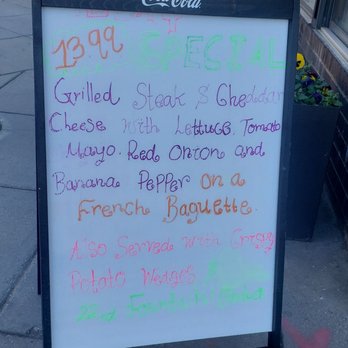 Coca-Cola
13.99 SPECIAL
Grilled Steak & Cheddar
Cheese with Lettuce. Tomato
Mayo. Red Onion and
Banana Pepper on a
French Baguette.
Also Served with Crispy
Potato Wedges
Salad